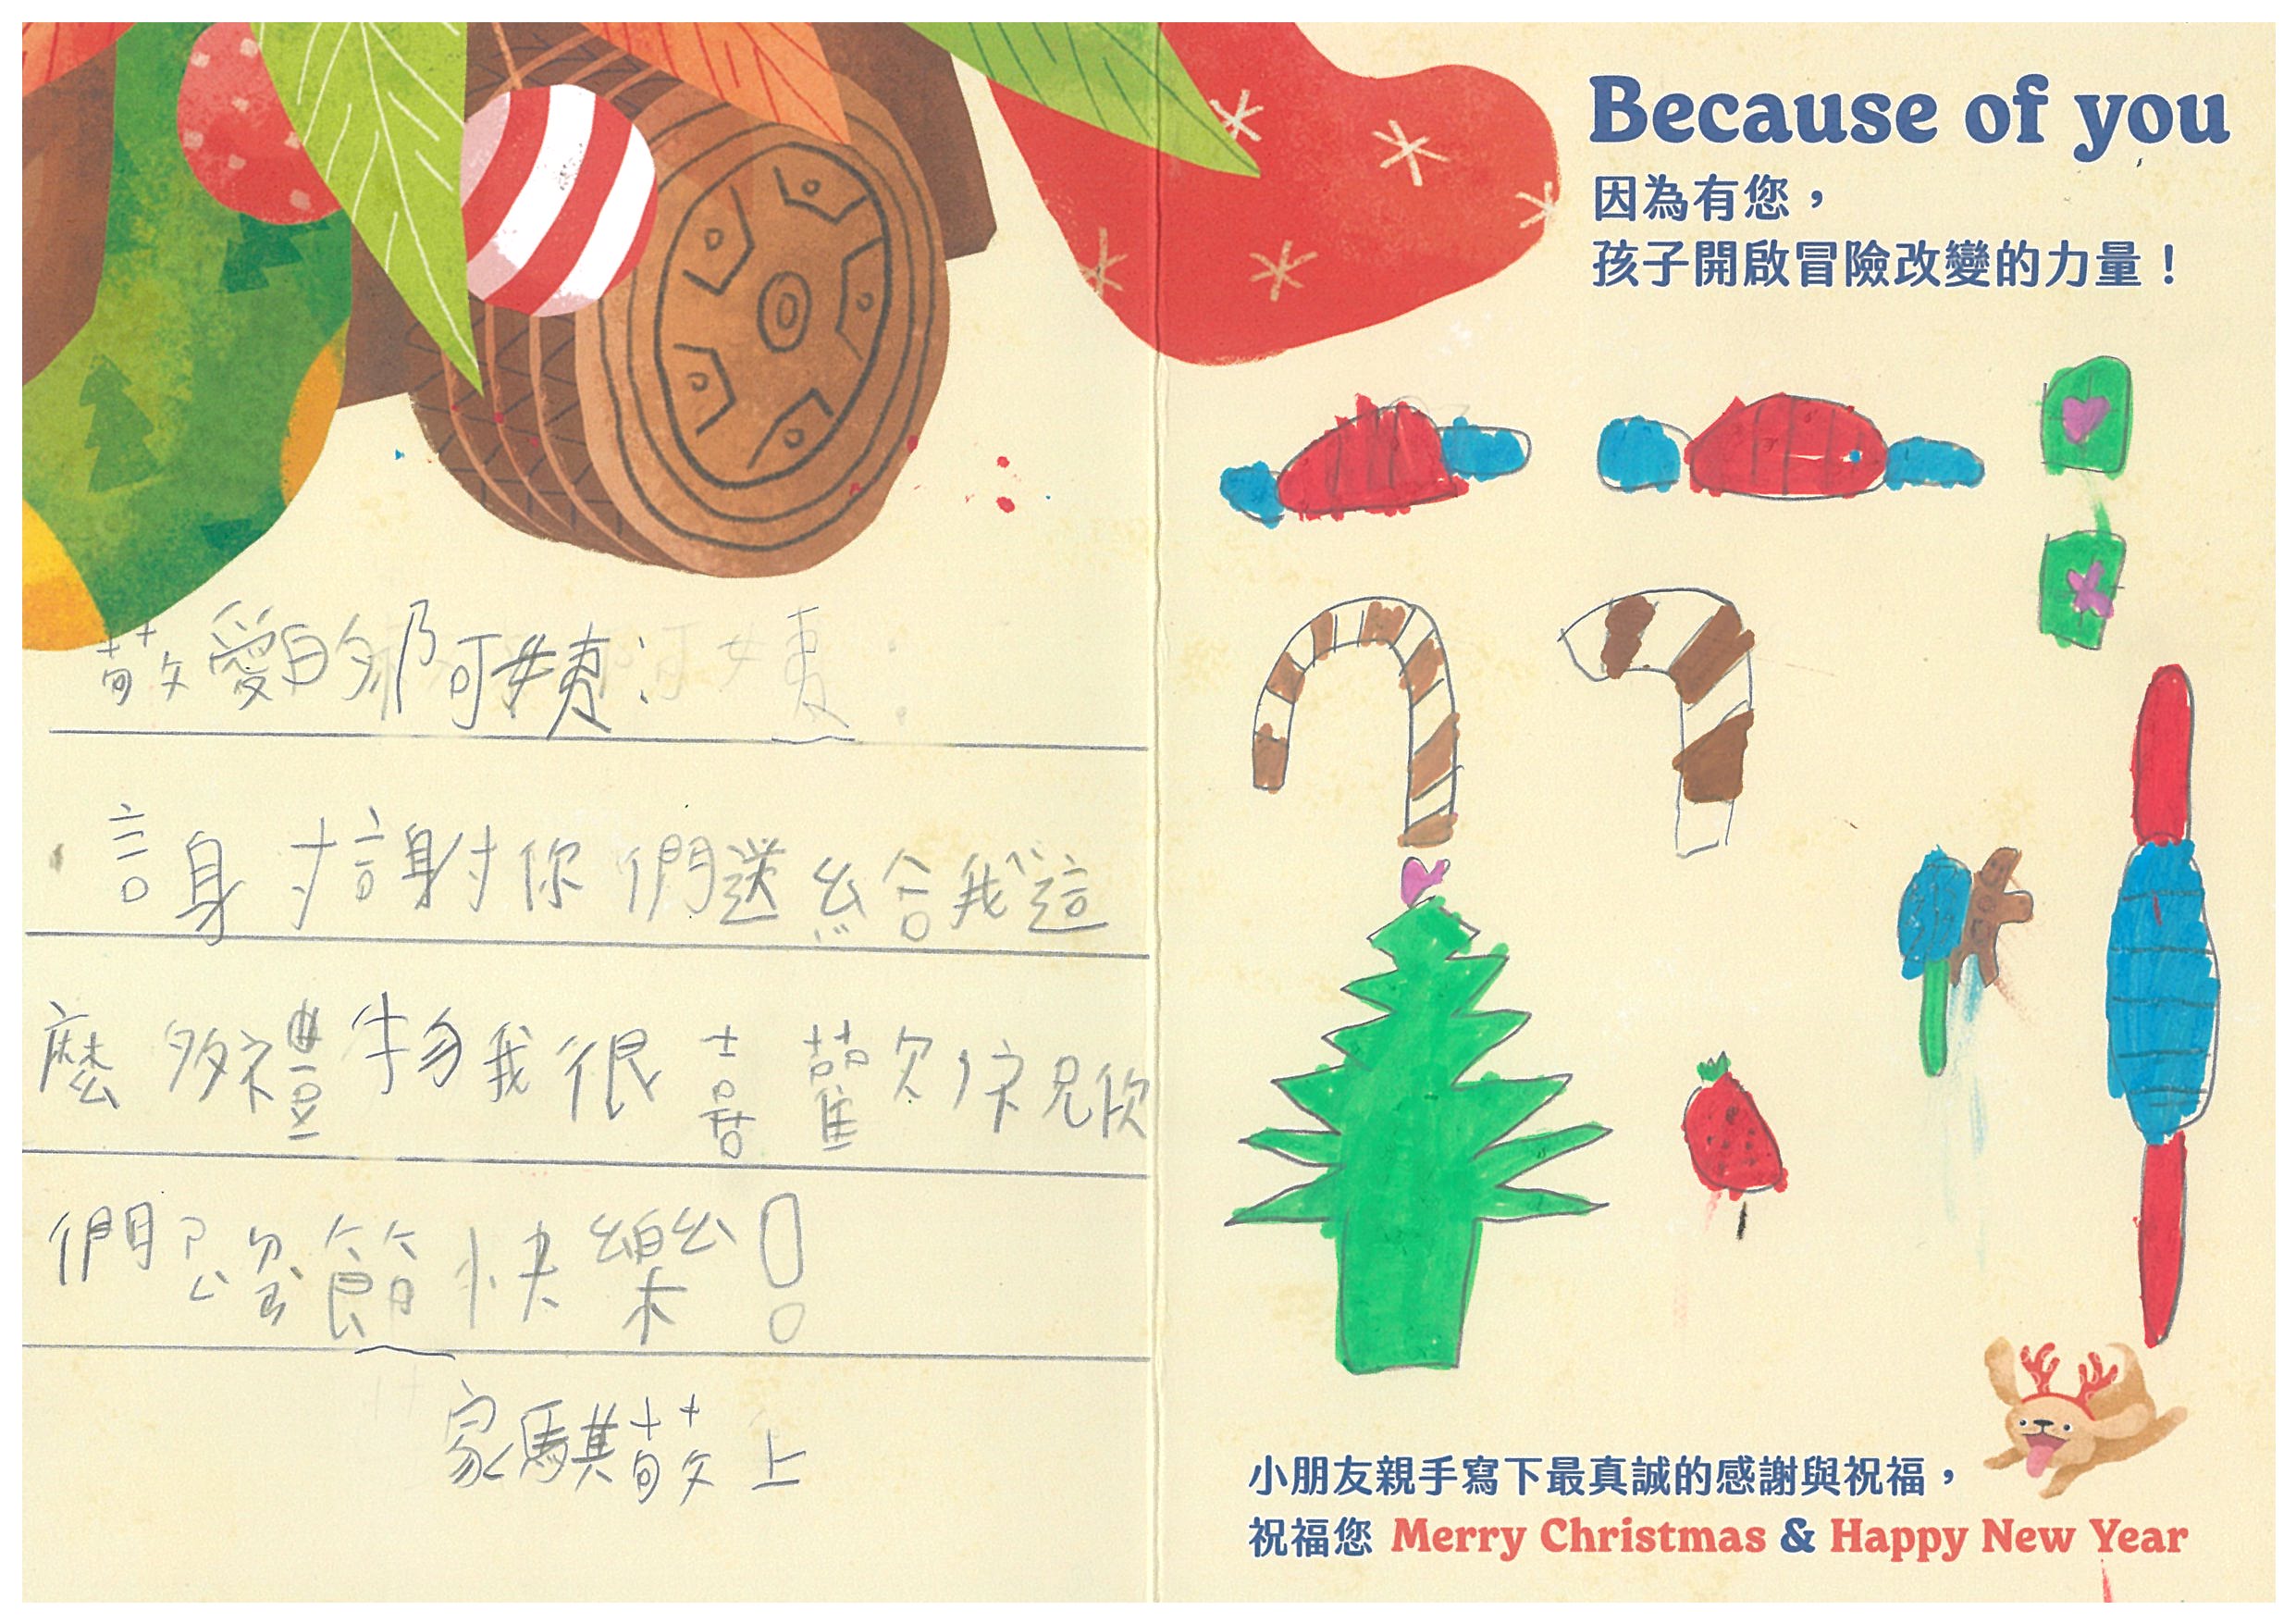 敬愛的那阿姨:
謝謝你們送給我這
麼多禮物我很喜歡祝你
們耶ㄉㄢˋ節快樂!
家騏敬上
Because of you
因為有您，
孩子開啟冒險改變的力量！
小朋友親手寫下最真誠的感謝與祝福，
祝福您 Merry Christmas & Happy New Year